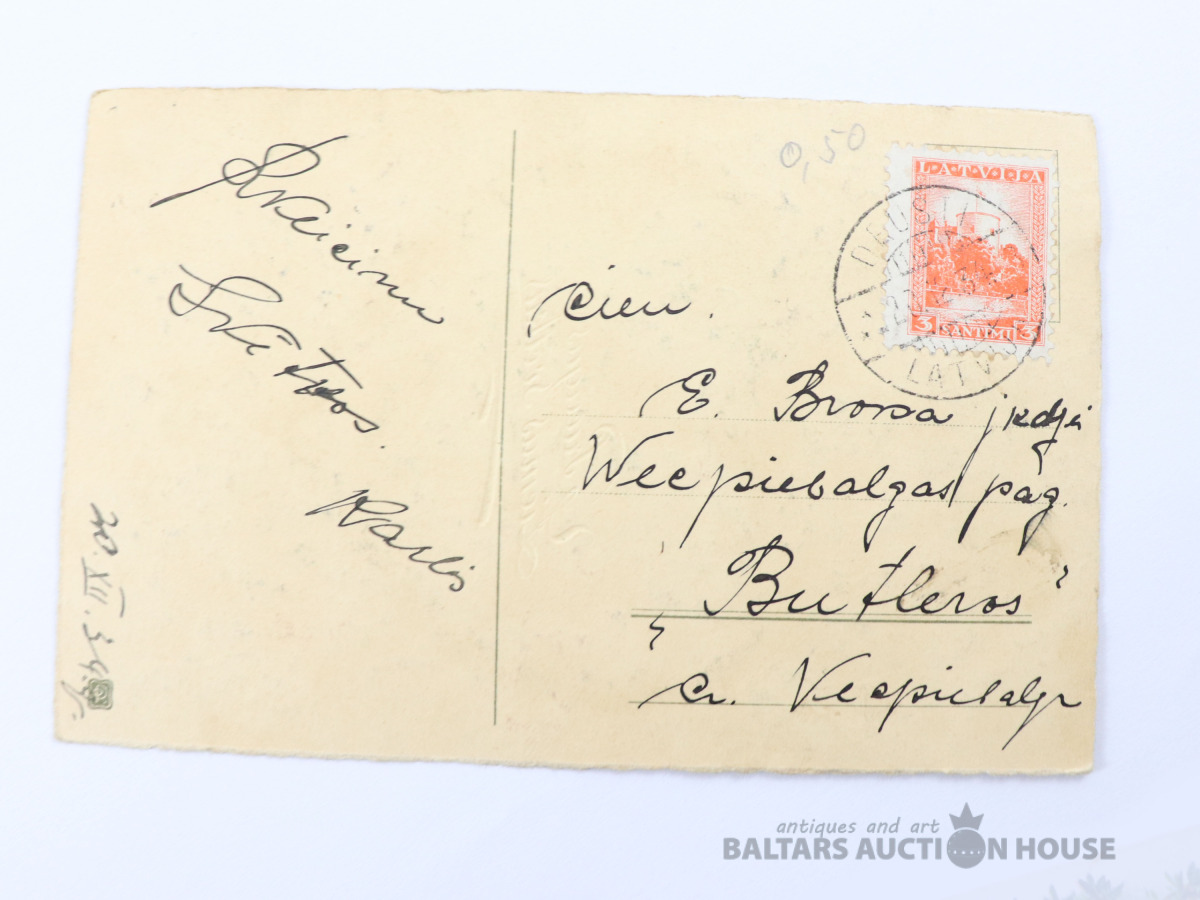 Sveicinu
Svētkos.
Karlis
20. XII. 34. g.
0,50
LATVIJA
3 SANTIMI 3
LATVIJA
cien.
E. Brorsa jkdzei
Wecpiebalgas pag.
"Butleros"
cr. Vecpiebalgr
antiques and art
BALTARS AUCTION HOUSE